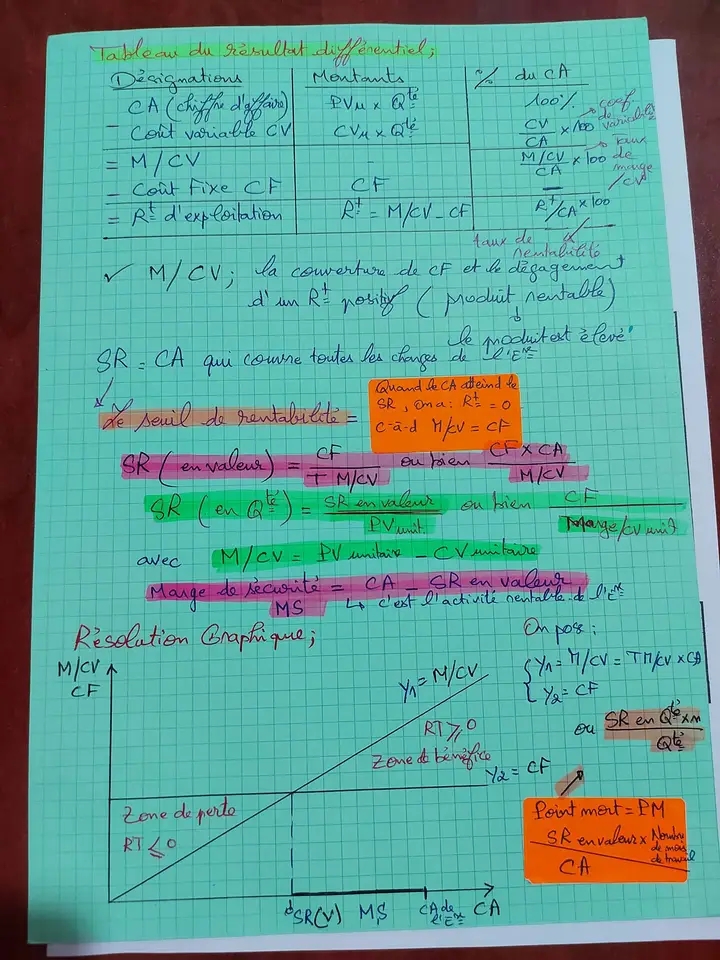 Tableau du résultat différentiel;
Désignations Montants % du CA
CA (chiffre d'affaire) PVu x Qté 100%
- Coût variable CV CVu x Qté CV/CA x 100 → coef de variabilité
= M/CV M/CV/CA x 100 → Taux de marge /CV
- Coût Fixe CF CF —
= Rt d'exploitation Rt = M/CV - CF Rt/CA x 100
taux de rentabilité
✓ M/CV; la couverture de CF et le dégagement
d'un Rt positif (produit rentable)
le produit est élevé
SR = CA qui couvre toutes les charges de l'Ese
Le seuil de rentabilité =
Quand le CA atteind le
SR, on a: Rt = 0
c-à-d M/CV = CF
SR (en valeur) = CF / T M/CV ou bien CF x CA / M/CV
SR (en Qté) = SR en valeur / PV unit. ou bien CF / Marge/CV unit
avec M/CV = PV unitaire - CV unitaire
Marge de sécurité = CA - SR en valeur
MS ↳ c'est l'activité rentable de l'Ese
Résolution Graphique;
On pos:
{ y1 = M/CV = TM/CV x CA
{ y2 = CF
ou SR en Qté x n / Qté
M/CV
CF
y1 = M/CV
RT ≥ 0
Zone de bénéfice
y2 = CF
Zone de perte
RT ≤ 0
SR(V) MS CA de l'Ese CA
Point mort = PM
SR en valeur x Nombre de mois de travail
CA